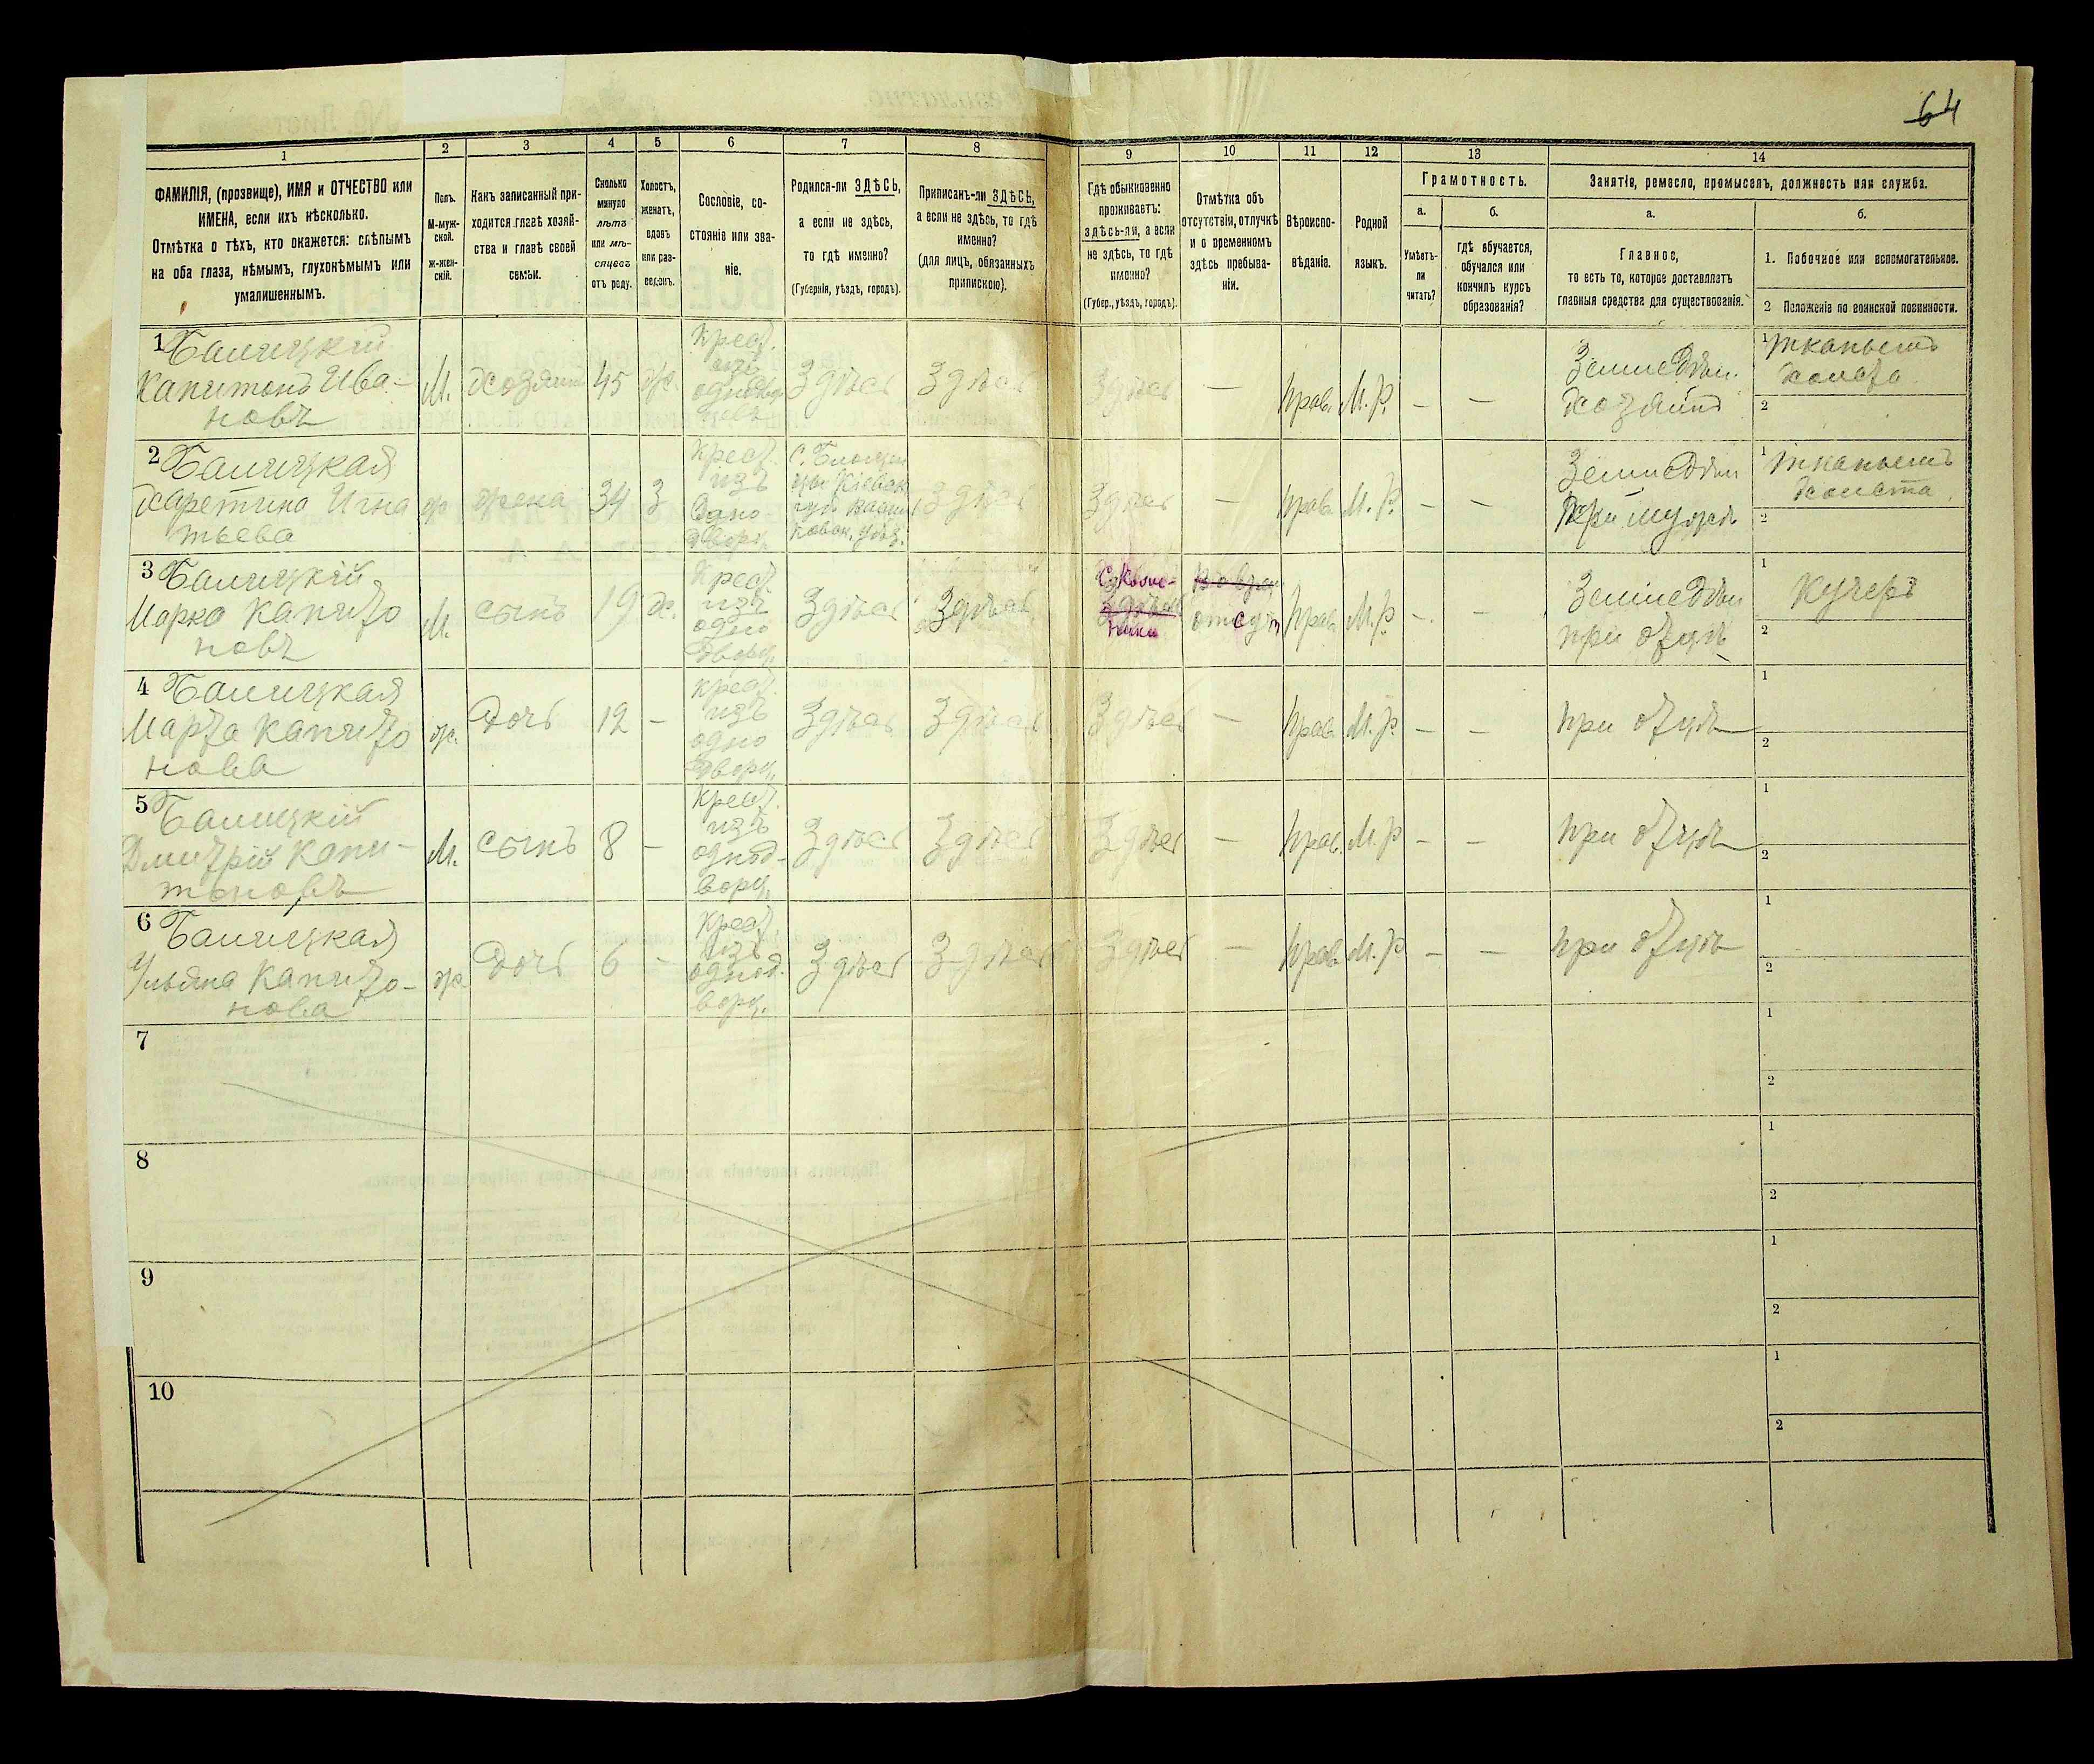 64
1 2 3 4 5 6 7 8 9 10 11 12 13 14
ФАМИЛІЯ, (прозвище), ИМЯ и ОТЧЕСТВО или
ИМЕНА, если ихъ нѣсколько.
Отмѣтка о тѣхъ, кто окажется: слѣпымъ
на оба глаза, нѣмымъ, глухонѣмымъ или
умалишеннымъ.
Полъ.
М-муж-
ской.
ж-жен-
скій.
Какъ записанный при-
ходится главѣ хозяй-
ства и главѣ своей
семьи.
Сколько
минуло
лѣтъ
или мѣ-
сяцевъ
отъ роду.
Холостъ,
женатъ,
вдовъ
или раз-
веденъ.
Сословіе, со-
стояніе или зва-
ніе.
Родился-ли ЗДѢСЬ,
а если не здѣсь,
то гдѣ именно?
(Губернія, уѣздъ, городъ).
Приписанъ-ли ЗДѢСЬ,
а если не здѣсь, то гдѣ
именно?
(для лицъ, обязанныхъ
припискою).
Гдѣ обыкновенно
проживаетъ:
здѣсь-ли, а если
не здѣсь, то гдѣ
именно?
(Губер., уѣздъ, городъ).
Отмѣтка объ
отсутствіи, отлучкѣ
и о временномъ
здѣсь пребыва-
ніи.
Вѣроиспо-
вѣданіе.
Родной
языкъ.
Грамотность.
а.
Умѣетъ-
ли
читать?
б.
гдѣ обучается,
обучался или
кончилъ курсъ
образованія?
Занятіе, ремесло, промыселъ, должность или служба.
а.
Главное,
то есть то, которое доставляетъ
главныя средства для существованія.
б.
1. Побочное или вспомогательное.
2 Положеніе по воинской повинности.
1 Балицкій
Капитонъ Ива-
новъ
М.
хозяинъ
45
ж.
Крест.
изъ
Здѣсь
Здѣсь
Здѣсь
—
прав.
М.р.
—
—
Земледѣл.
хозяинъ
1
холста
2
2 Балицкая
Харетина Игна
тьева
ж
жена
34
З
Крест.
изъ
одно
дворц.
Здѣсь
Здѣсь
—
прав.
М.р.
—
—
Земледѣл
при мужѣ
1
холста
2
3 Балицкій
Марко Капито
новъ
М.
сынъ
19
х.
Крест.
изъ
одно
дворц.
Здѣсь
Здѣсь
Здѣсь
отсут
прав.
М.р.
—
—
Земледѣл
при отцѣ
1
Кучеръ
2
4 Балицкая
Марта Капито
нова
ж.
Дочь
12
—
крест.
изъ
одно
дворц.
Здѣсь
Здѣсь
Здѣсь
—
прав.
М.р.
—
—
при отцѣ
1
2
5 Балицкій
Дмитрій Капи-
тоновъ
М.
сынъ
8
—
Крест.
изъ
однод-
ворц.
Здѣсь
Здѣсь
Здѣсь
—
прав.
М.р
—
—
при отцѣ
1
2
6 Балицкая
Ульяна Капито-
нова
ж.
Дочь
6
—
Крест
изъ
однод-
ворц.
Здѣсь
Здѣсь
Здѣсь
—
прав.
М.р
—
—
при отцѣ
1
2
7
1
2
8
1
2
9
1
2
10
1
2